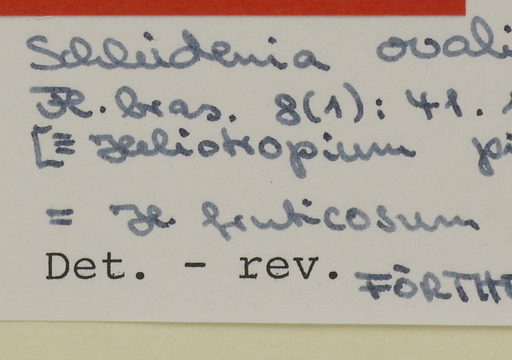 Schleidenia ovali
Fl. bras. 8(1): 41.
[≡ Heliotropium pi
= H fruticosum
Det. - rev. FÖRTHE